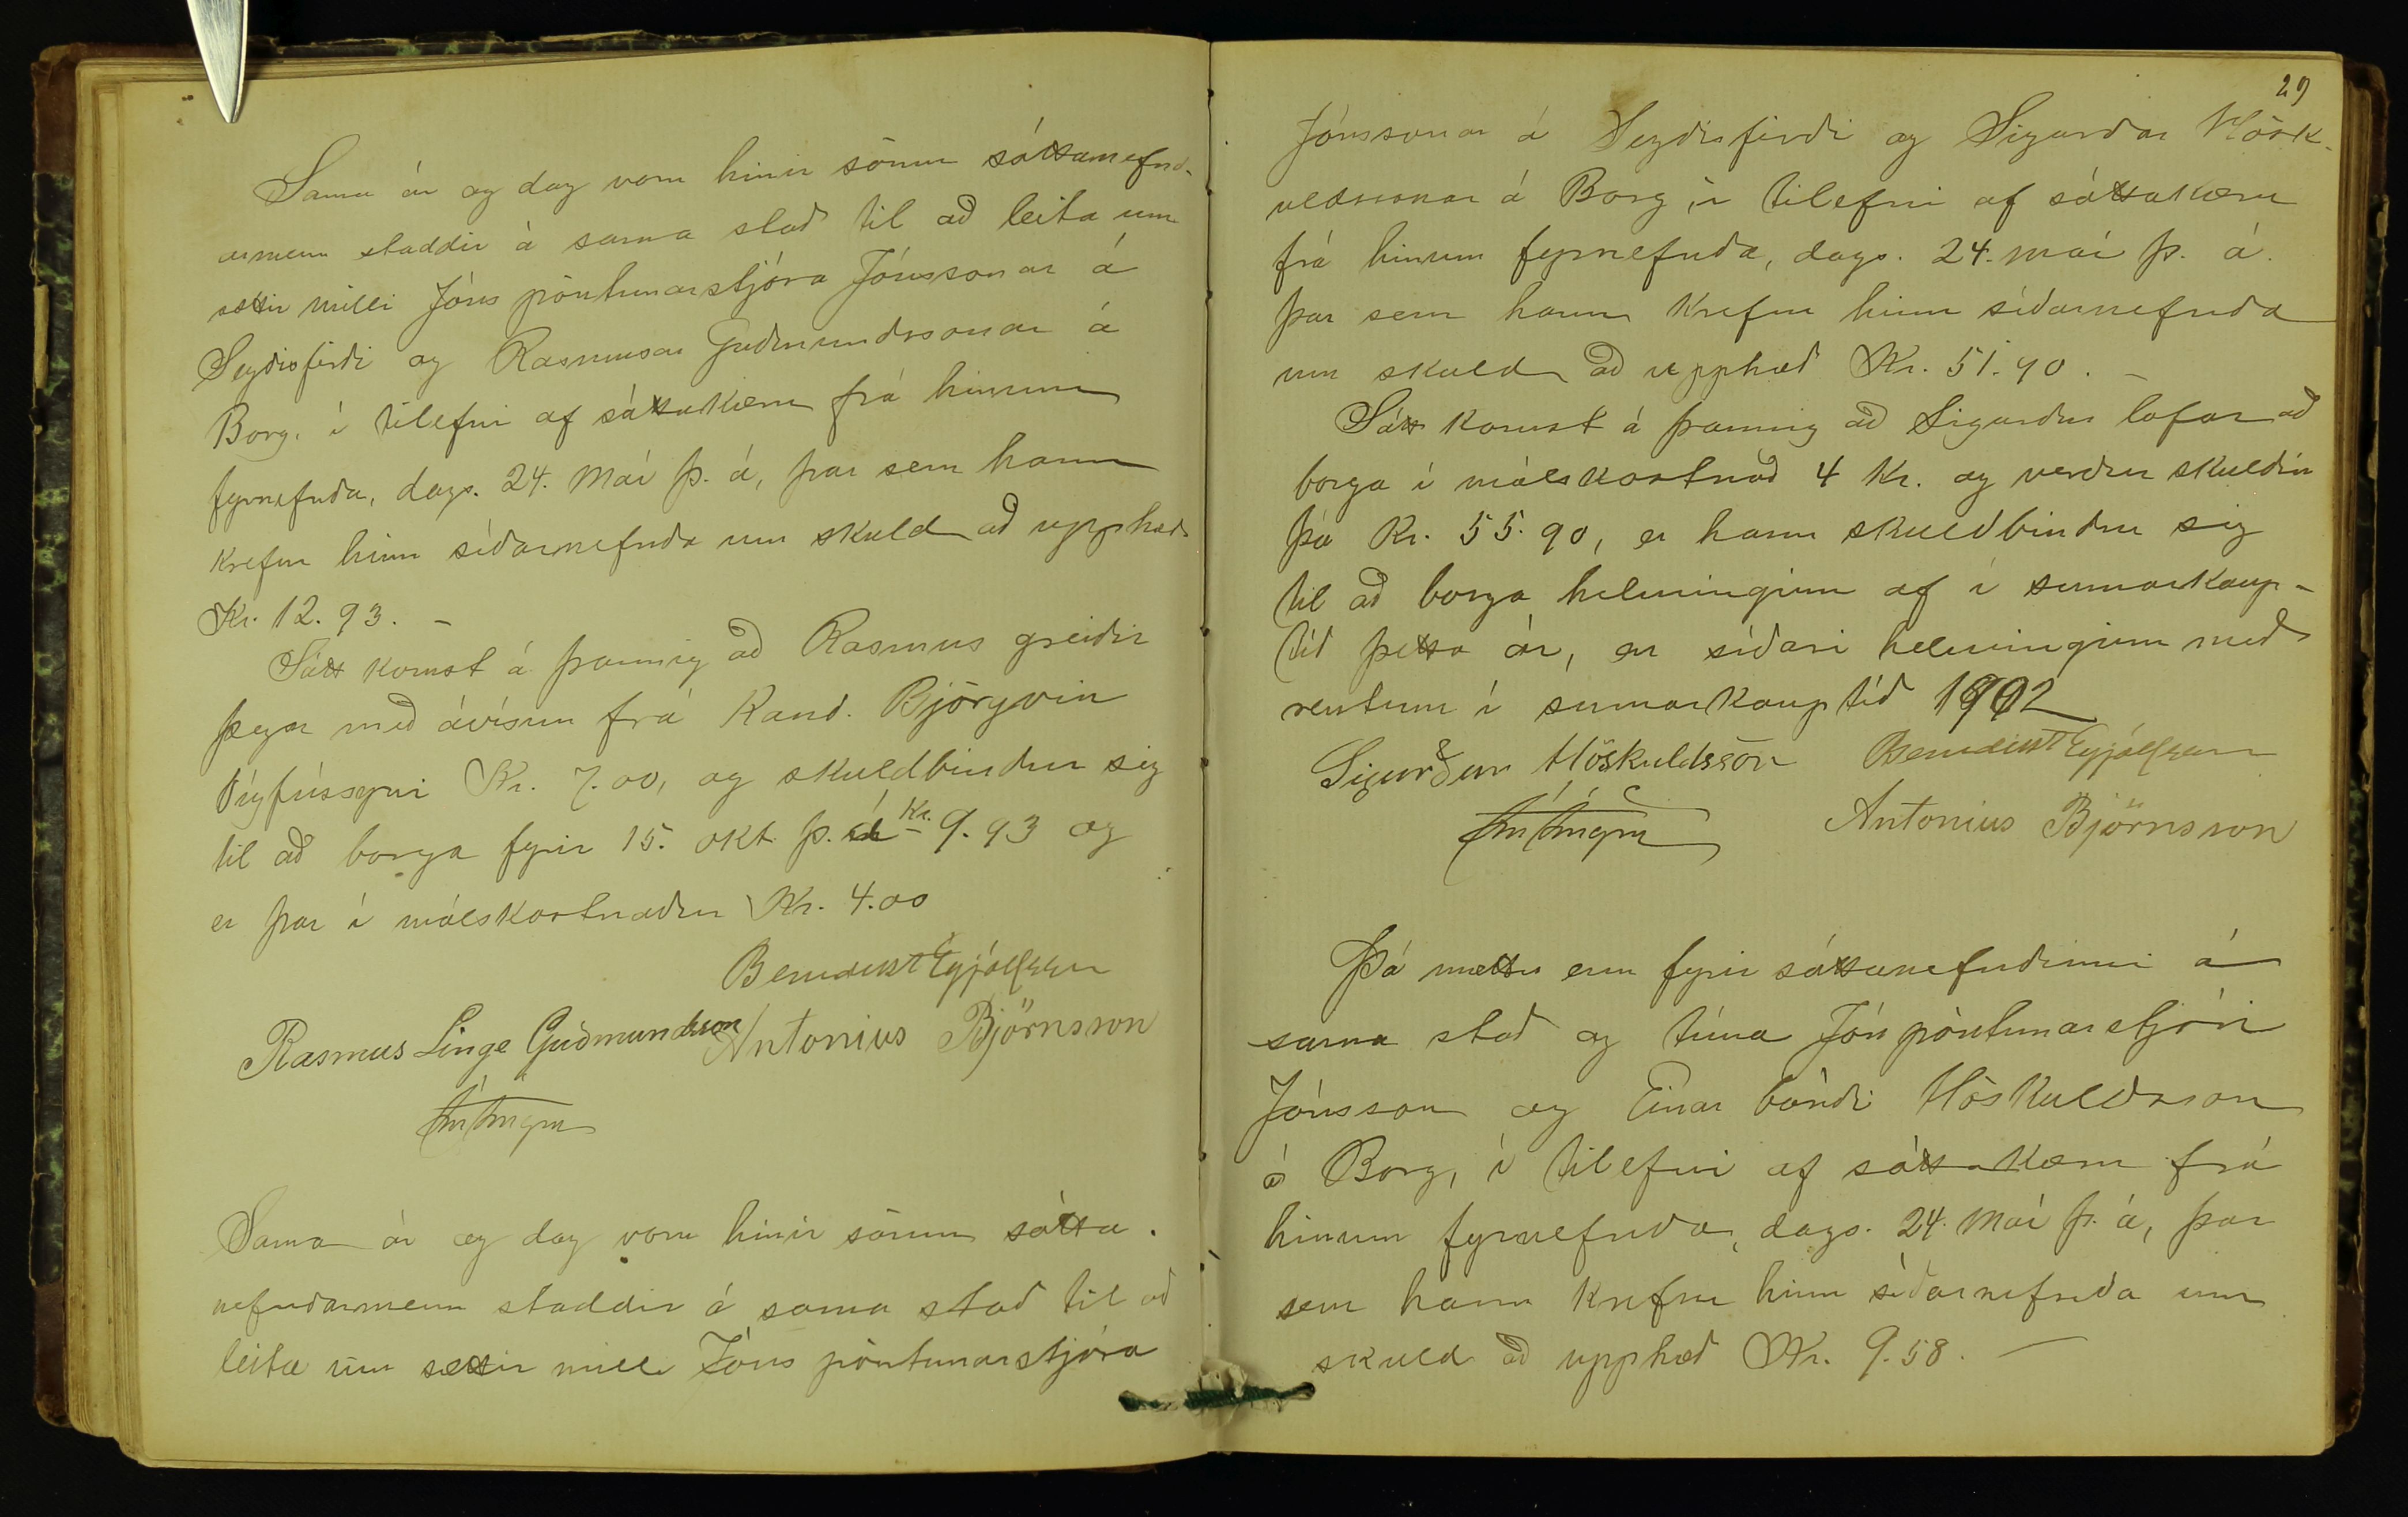 Sama ár og dag voru hinir sömu sáttanefnd-
armenn staddir á sama stað til að leita um
sættir milli Jóns pöntunarstjóra Jónssonar á
Seyðisfirði og Rasmusar Guðmundssonar á
Borg, í tilefni af sáttakæru frá hinum
fyrnefnda, dags. 24. Maí þ. á, þar sem hann
krefur hinn síðarnefnda um skuld að upphæð
Kr. 12.93. -
Sátt komst á þannig að Rasmus greiðir
þegar með ávísun frá Kand. Björgvin
Vigfússyni Kr. 7.00, og skuldbindur sig
til að borga fyrir 15. okt. þ. á Kr. 9.93 og
er þar í málskostnaður Kr. 4.00
Benedikt Eyjólfsson
Rasmus Linge Guðmundsson Antonius Björnsson
Sama ár og dag voru hinir sömu sátta.
nefndarmenn staddir á sama stað til að
leita um sættir milli Jóns pöntunarstjóra
29
Jónssonar á Seyðisfirði og Sigurðar Hösk-
uldssonar á Borg, í tilefni af sáttakæru
frá hinum fyrnefnda, dags. 24. maí þ. á.
þar sem hann krefur hinn síðarnefnda
um skuld að upphæð Kr. 51.90. -
Sátt komst á þannig að Sigurður lofar að
borga í málskostnað 4 Kr. og verður skuldin
þá Kr. 55.90, er hann skuldbindur sig
til að borga helminginn af í sumarkaup-
tíð þetta ár, en síðari helminginn með
rentum í sumarkauptíð 1902
Sigurður Höskuldsson Benedikt Eyjólfsson
Antonius Björnsson
Þá mættu enn fyrir sáttanefndinni á
sama stað og tíma Jón pöntunarstjóri
Jónsson og Einar bóndi Höskuldsson
á Borg, í tilefni af sáttakæru frá
hinum fyrnefnda, dags. 24. Maí þ. á, þar
sem hann krefur hinn síðarnefnda um
skuld að upphæð Kr. 9.58. -